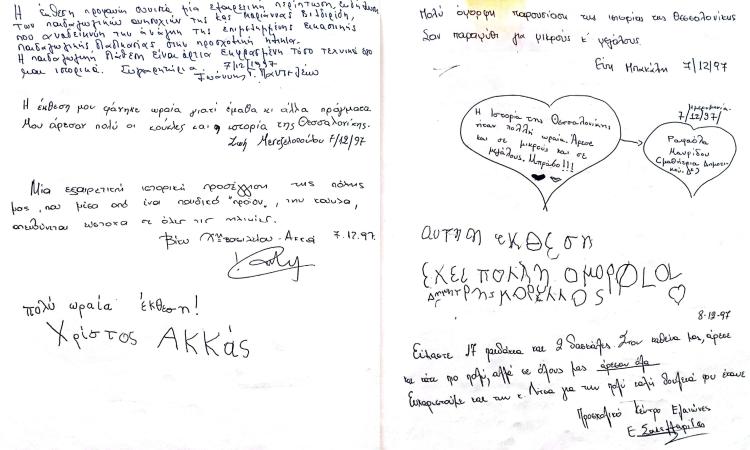 Η έκθεση προφανώς συνιστά μία εξαιρετική περίπτωση εκδήλωσης
των παιδαγωγικών ανησυχιών της κας Μαριάννας
που αναδεικνύει την ανάγκη της επιμελημένης εικαστικής
παιδαγωγικής διαδικασίας στην προσχολική ηλικία.
Η παιδαγωγική διάθεση είναι άρτια εκφρασμένη τόσο τεχνικά όσο
και ιστορικά. Συγχαρητήρια. 7/12/1997
Ιωάννης Γ. Παντελέων
Η έκθεση μου φάνηκε ωραία γιατί έμαθα κι άλλα πράγματα
Μου άρεσαν πολύ οι κούκλες και η ιστορία της Θεσσαλονίκης.
Ζωή Μενεξελοπούλου 7/12/97
Μία εξαιρετική ιστορική προσέγγιση της πόλης
μας, που μέσα από ένα παιδικό "προϊόν", την κούκλα,
απευθύνεται ωστόσο σε όλες τις ηλικίες.
Βίου 7.12.97
πολύ ωραία έκθεση!
Χρίστος ΑΚΚάς
Πολύ όμορφη παρουσίαση της ιστορίας της Θεσσαλονίκης
Σαν παραμύθι για μικρούς κ' μεγάλους.
Εύη Μπακάλη 7/12/97
Η Ιστορία της Θεσσαλονίκης
ήταν πολλή ωραία. Άρεσε
και σε μικρούς και σε
μεγάλους. Μπράβο!!!
ημερομηνία.
7/12/97/
Ραφαέλα
Μαυρίδου
(μαθήτρια Δημοτι-
κού. β')
αυτηη εκθεση
έχει πολλη ομορφΙΑ
Δημητρης ΚΟΡΕΛΛΟS
8-12-97
Είμαστε 17 παιδάκια και 2 δασκάλες. Στον καθένα μας, άρεσε
και κάτι πιο πολύ, αλλά σε όλους μας άρεσαν όλα
Ευχαριστούμε και την κ. Λίτσα για την πολύ καλή δουλειά που έκανε
Προσχολικό Κέντρο Ελαιώνες